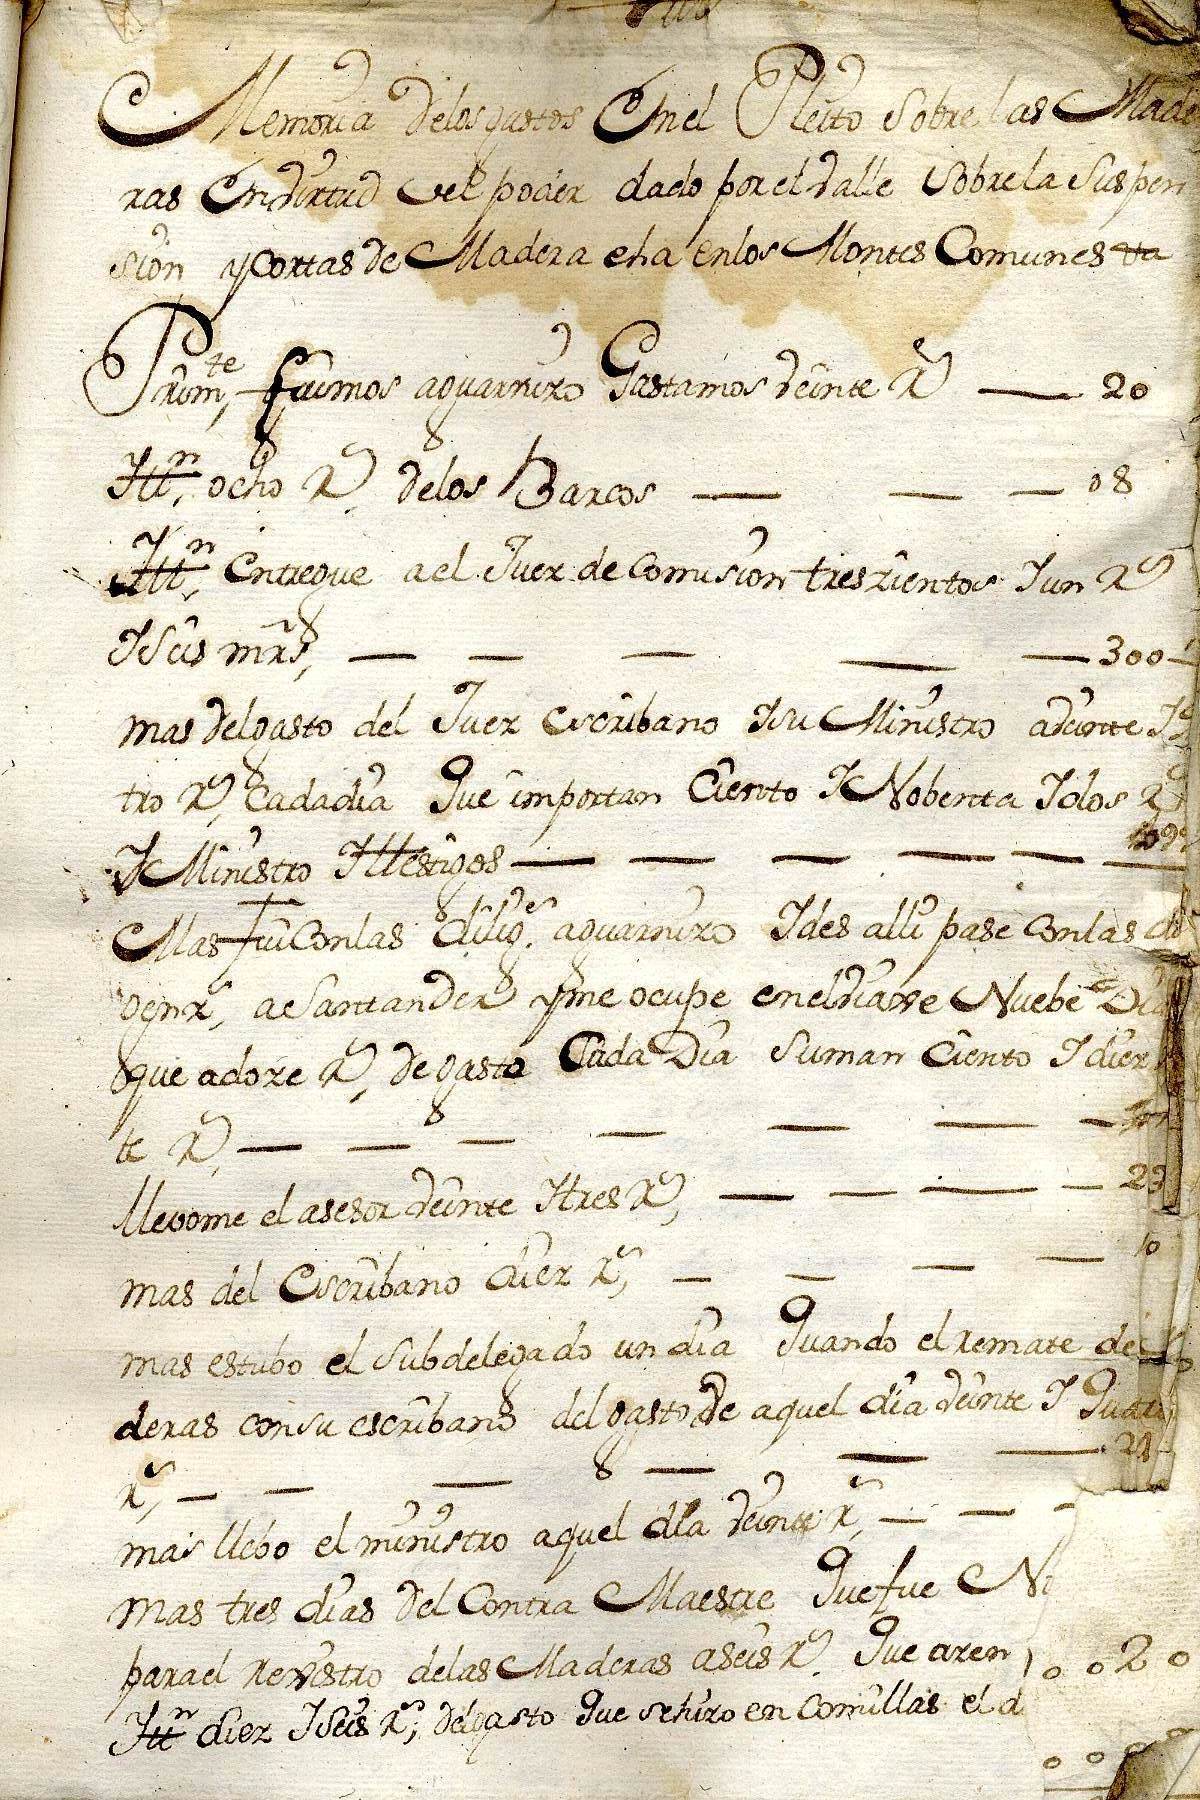 Memoria delos gastos Enel Pleito Sobre las Made
ras En Virtud del poder dado por el Valle Sobre la Suspen
sion y cortas de Madera eha en los Montes Comunes
Prim.te fuimos aguarnizo Gastamos Veinte R.s 20
Ittn ocho R.s de los Barcos 08
Ittn Entregue a el Juez de Comision treszientos I un R.s
I Seis mrs, 300
mas del gasto del Juez escribano I su Ministro a Veinte I
tro R.s cada dia Que importan Ciento I Nobenta I dos R.s
I Ministro I ttestigos
Mas fui Con las dilig.s aguarnizo I des alli pase Con las
a Santander y me ocupe en el Viaxe Nuebe Dia
que a doze R.s de gasto Cada Dia Suman Ciento I
te R.s
llevome el asesor Veinte I tres R.s 23
mas del Escribano diez R.s 10
mas estubo el Subdelegado un dia Quando el remate de
deras con su escribano del gasto de aquel dia Veinte I Quatro
R.s 24
mas llebo el ministro aquel dia Veinte R.s
mas tres dias del Contra Maestre Que fue
para el rexistro de las Maderas a seis R.s Que azen 0020
Ittn diez I seis R.s del gasto Que se hizo en Comillas el d